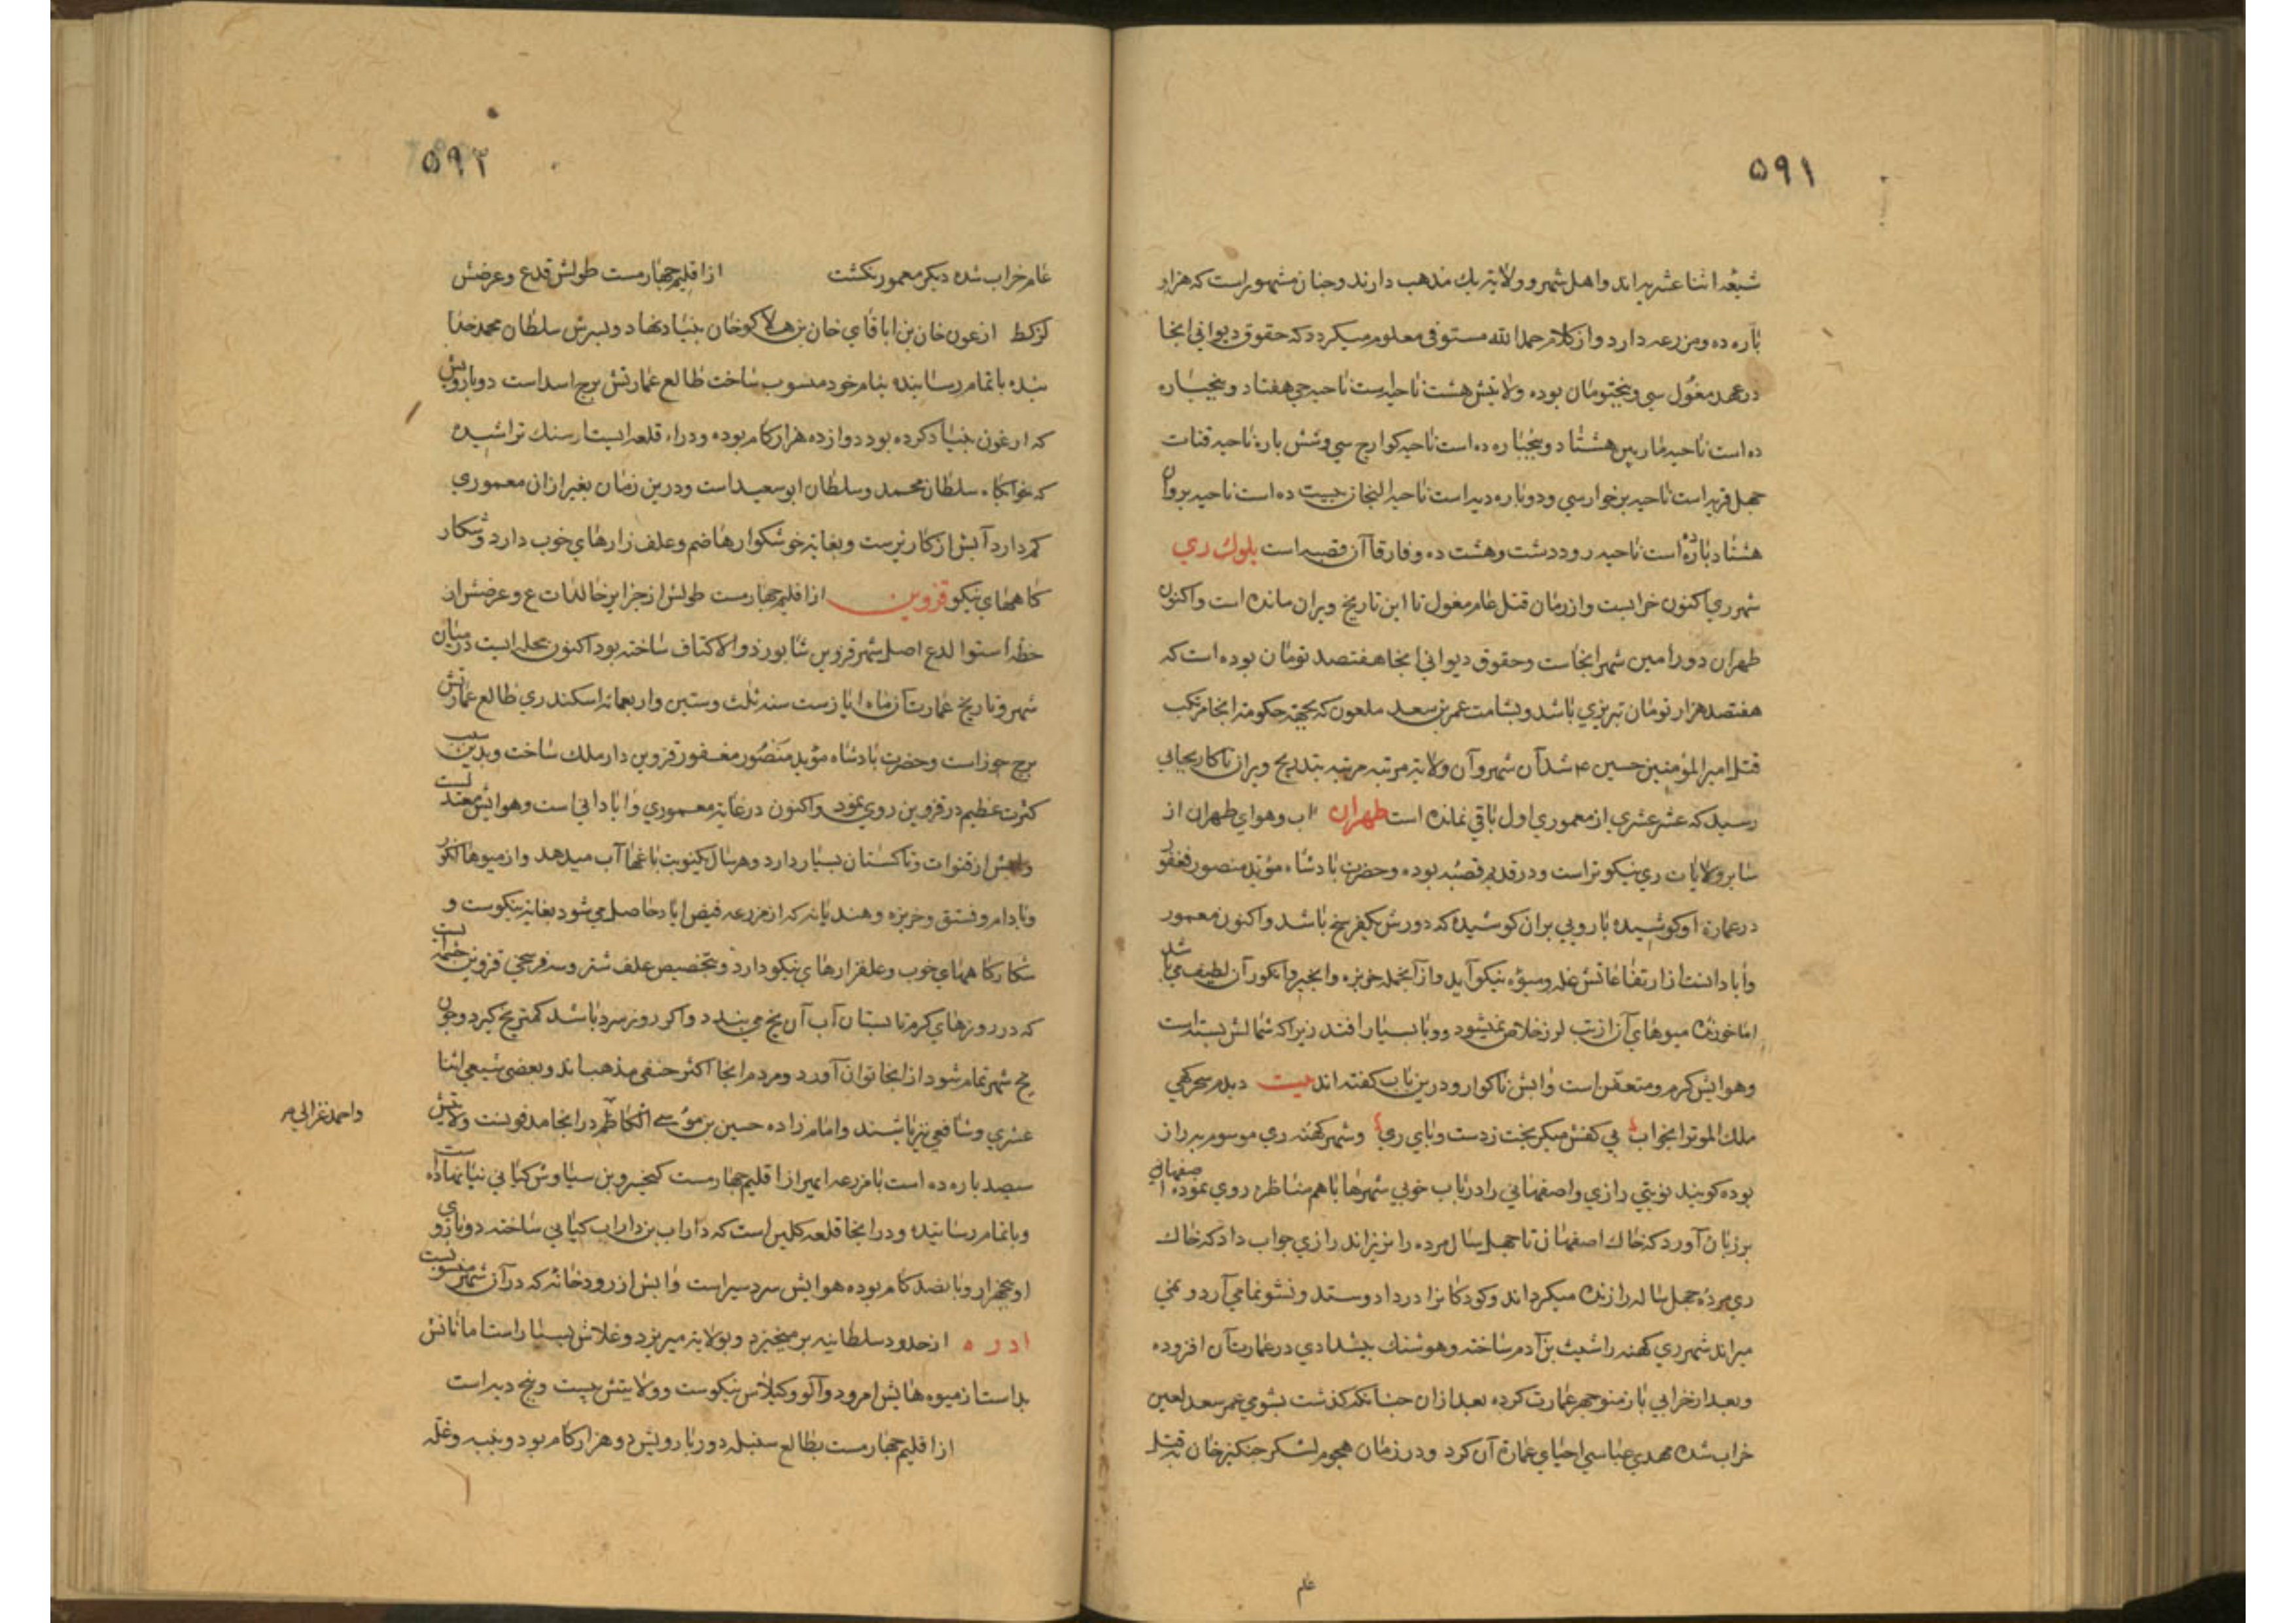 ۵۹۱
شیعه اثنا عشریه اند و اهل شهر و ولایة یك مذهب دارند و چنان مشهور است که هزار
پاره ده و مزرعه دارد و از کلام حمد الله مستوفی معلوم میکردد که حقوق دیوانی انجا
در عهد مغول سی و پنج تومان بوده و ولایتش هشت ناحیه است ناحیه جی هفتاد و پنج پاره
ده است ناحیه ماربین هشتاد و پنجپاره ده است ناحیه کوارج سی و شش پاره ناحیه قنات
چهل قریه است ناحیه برخوار سی و دو پاره دیه است ناحیه النجان بیست ده است ناحیه بروان
هشتاد پاره است ناحیه رود دشت و هشت ده و فارقاآن قصبه است بلوك ري
شهر ري اکنون خرابست و از زمان قتل عام مغول تا این تاریخ ویران مانده است و اکنون
طهران و ورامین شهر انجاست و حقوق دیوانی انجا هفتصد تومان بوده است که
هفتصد هزار تومان تبریزي باشد و بشامت عمر بن سعد ملعون که بجهة حکومة انجا مرتکب
قتل امیر المؤمنین حسین ع شد آن شهر و آن ولایة مرتبه مرتبه بتدریج ویران تا کار بجایی
رسید که عشر عشري از معموري اول باقی نمانده است طهران اب و هواي طهران از
سایر ولایات ري نیکوتر است و در قدیم قصبه بوده و حضرت پادشاه مؤید منصور مغفور
در عمارة او کوشیده بارویی بران کوشیده که دورش یکفرسخ باشد و اکنون معمور
و ابادانست از ارتفاعاتش غله و میوه نیکو آید و از آنجمله خربزه و انجیر و انکور آن لطیف می باشد
اما خورنده میوهاي آن از تب لرز خلاص نمیشود و وبا بسیار افتد زیرا که شمالش بسته است
و هوایش کرم و متعفن است و ابش ناکوار و درین باب کفته اند بیت دیدم سحر کهی
ملك الموت را بخواب بی کفش میکریخت ز دست وباي ري و شهر کهنه ري موسوم به راز
بوده کویند نوبتی رازي و اصفهانی را در باب خوبی شهرها با هم مناظره روي نموده اصفهانی
بر زبان آورد که خاك اصفهان تا چهل سال مرده را نریزاند رازي جواب داد که خاك
ري مرده چهل ساله را زنده میکرداند و کودکانرا در داد و ستد و نشو نما می آرد و نمی
میراند شهر ري کهنه را شیث بن آدم ساخته و هوشنك پیشدادي در عمارت آن افزوده
و بعد از خرابی باز منوچهر عمارت کرده بعد از آن چنانکه کذشت بشومی عمر سعد لعین
خراب شده مهدي عباسی احیاي عمارة آن کرد و در زمان هجوم لشکر چنکیز خان به قتل
عام
۵۹۲
عام خراب شده دیکر معمور نکشت از اقلیم چهارمست طولش قدع و عرضش
کزکط ارغون خان بن اباقاي خان بن هلاکو خان بنیاد نهاد و پسرش سلطان محمد خدا
بنده باتمام رسانیده بنام خود منسوب ساخت طالع عمارتش برج اسد است دور بارویش
که ارغون بنیاد کرده بود دوازده هزار کام بوده و در او قلعه ایست از سنك تراشیده
که خوابکاه سلطان محمد و سلطان ابو سعید است و درین زمان بغیر از ان معموري
کم دارد آبش از کاریزست و بغایة خوشکوار هاضم و علف زارهاي خوب دارد و شکار
کاههاي نیکو قزوین از اقلیم چهارمست طولش از جزایر خالدات ع و عرضش از
خط استوا لدع اصل شهر قزوین شاپور ذو الاکتاف ساخته بود اکنون محله ایست در میان
شهر و تاریخ عمارت آن ماه ایارست سنه ثلث و ستین و اربعمائه اسکندري طالع عمارتش
برج جوز است و حضرت پادشاه مؤید منصور مغفور قزوین دار ملك ساخت و بدین سبب
کثرت عظیم در قزوین روي نمود و اکنون در غایة معموري و ابادانی است و هوایش معتدلست
و ابش از قنوات و تاکستان بسیار دارد و هر سال یکنوبت باغها آب میدهد و از میوها انکور
و بادام و فستق و خربزه و هندیانه که از مزرعه فیض اباد حاصل می شود بغایة نیکوست و
شکار کاههاي خوب و علفزارهاي نیکو دارد و بتخصیص علف شتر و سه فرسخی قزوین چشمه ایست
که در روزهاي کرم تابستان آب آن یخ می بندد و اکر روز سرد باشد کمتر یخ کیرد و چون
یخ شهر تمام شود از انجا توان آورد و مردم انجا اکثر حنفی مذهب اند و بعضی شیعی اثنا
عشري و شافعی نیز باشند و امام زاده حسین بن موسی الکاظم در انجا مدفونست و ولایتش
و احمد غزالی
سیصد پاره ده است با مزرعه ابهر از اقلیم چهارمست کیخسرو بن سیاوش کیانی بنیاد نهاده است
و باتمام رسانیده و در انجا قلعه کلین است که داراب بن داراب کیانی ساخته دور باروي
او پنجهزار و پانصد کام بوده هوایش سردسیر است و ابش از رودخانه که در آن شهر منسوبست
ادره از حدود سلطانیه بر میخیزد و بولایة میریزد و غلاش بسیار است اما نانش
بد است از میوه هایش امرود و آلو و کیلاس نیکوست و ولایتش بیست و پنج دیه است
از اقلیم چهارمست بطالع سنبله دور بارویش دو هزار کام بود و پنبه و غله